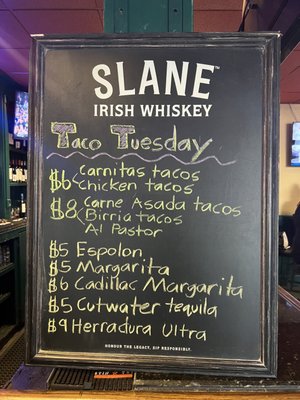 SLANE™
IRISH WHISKEY
Taco Tuesday
$6 Carnitas tacos
Chicken tacos
$8 Carne Asada tacos
Birria tacos
Al Pastor
$5 Espolon
$5 Margarita
$6 Cadillac Margarita
$5 Cutwater tequila
$9 Herradura Ultra
HONOUR THE LEGACY. SIP RESPONSIBLY.